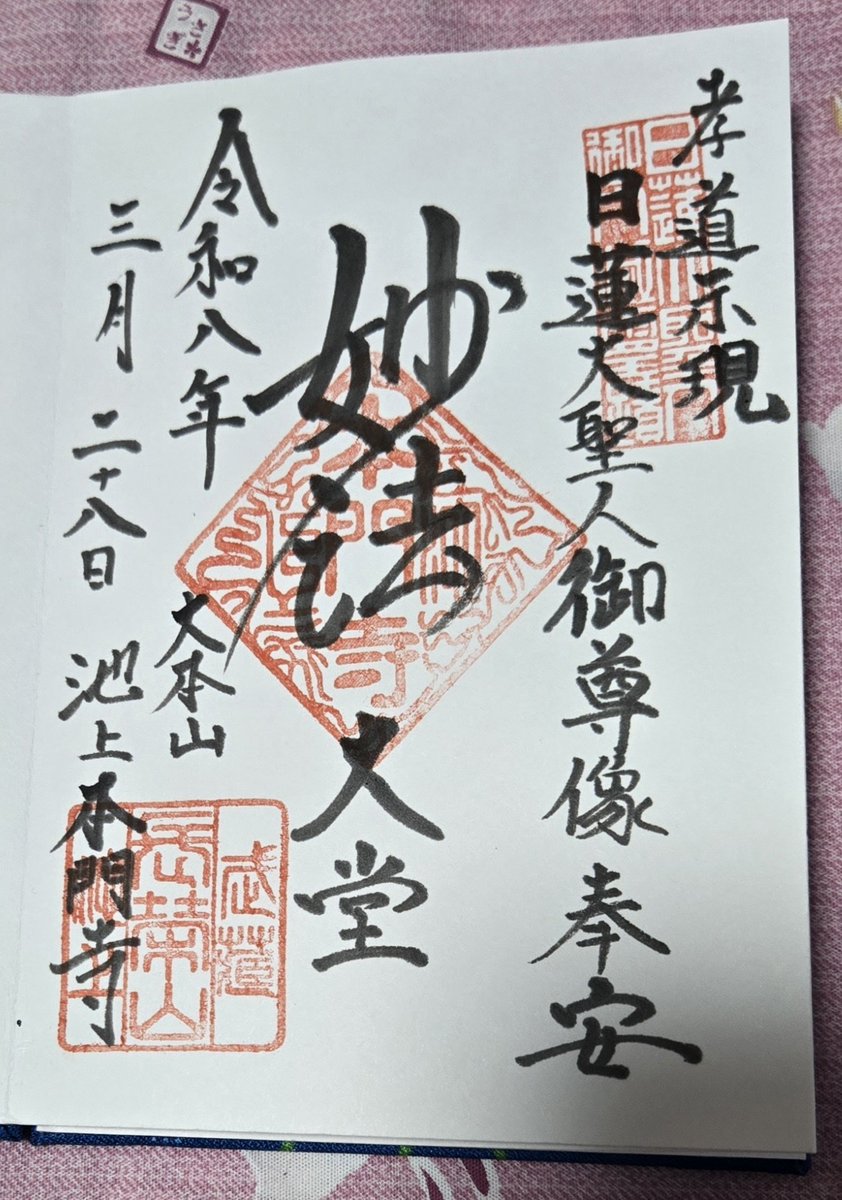 孝道示現
日蓮大聖人御尊像奉安
妙法
大堂
令和八年
三月二十八日
大本山
池上本門寺
武蔵
長栄山
うさぎ